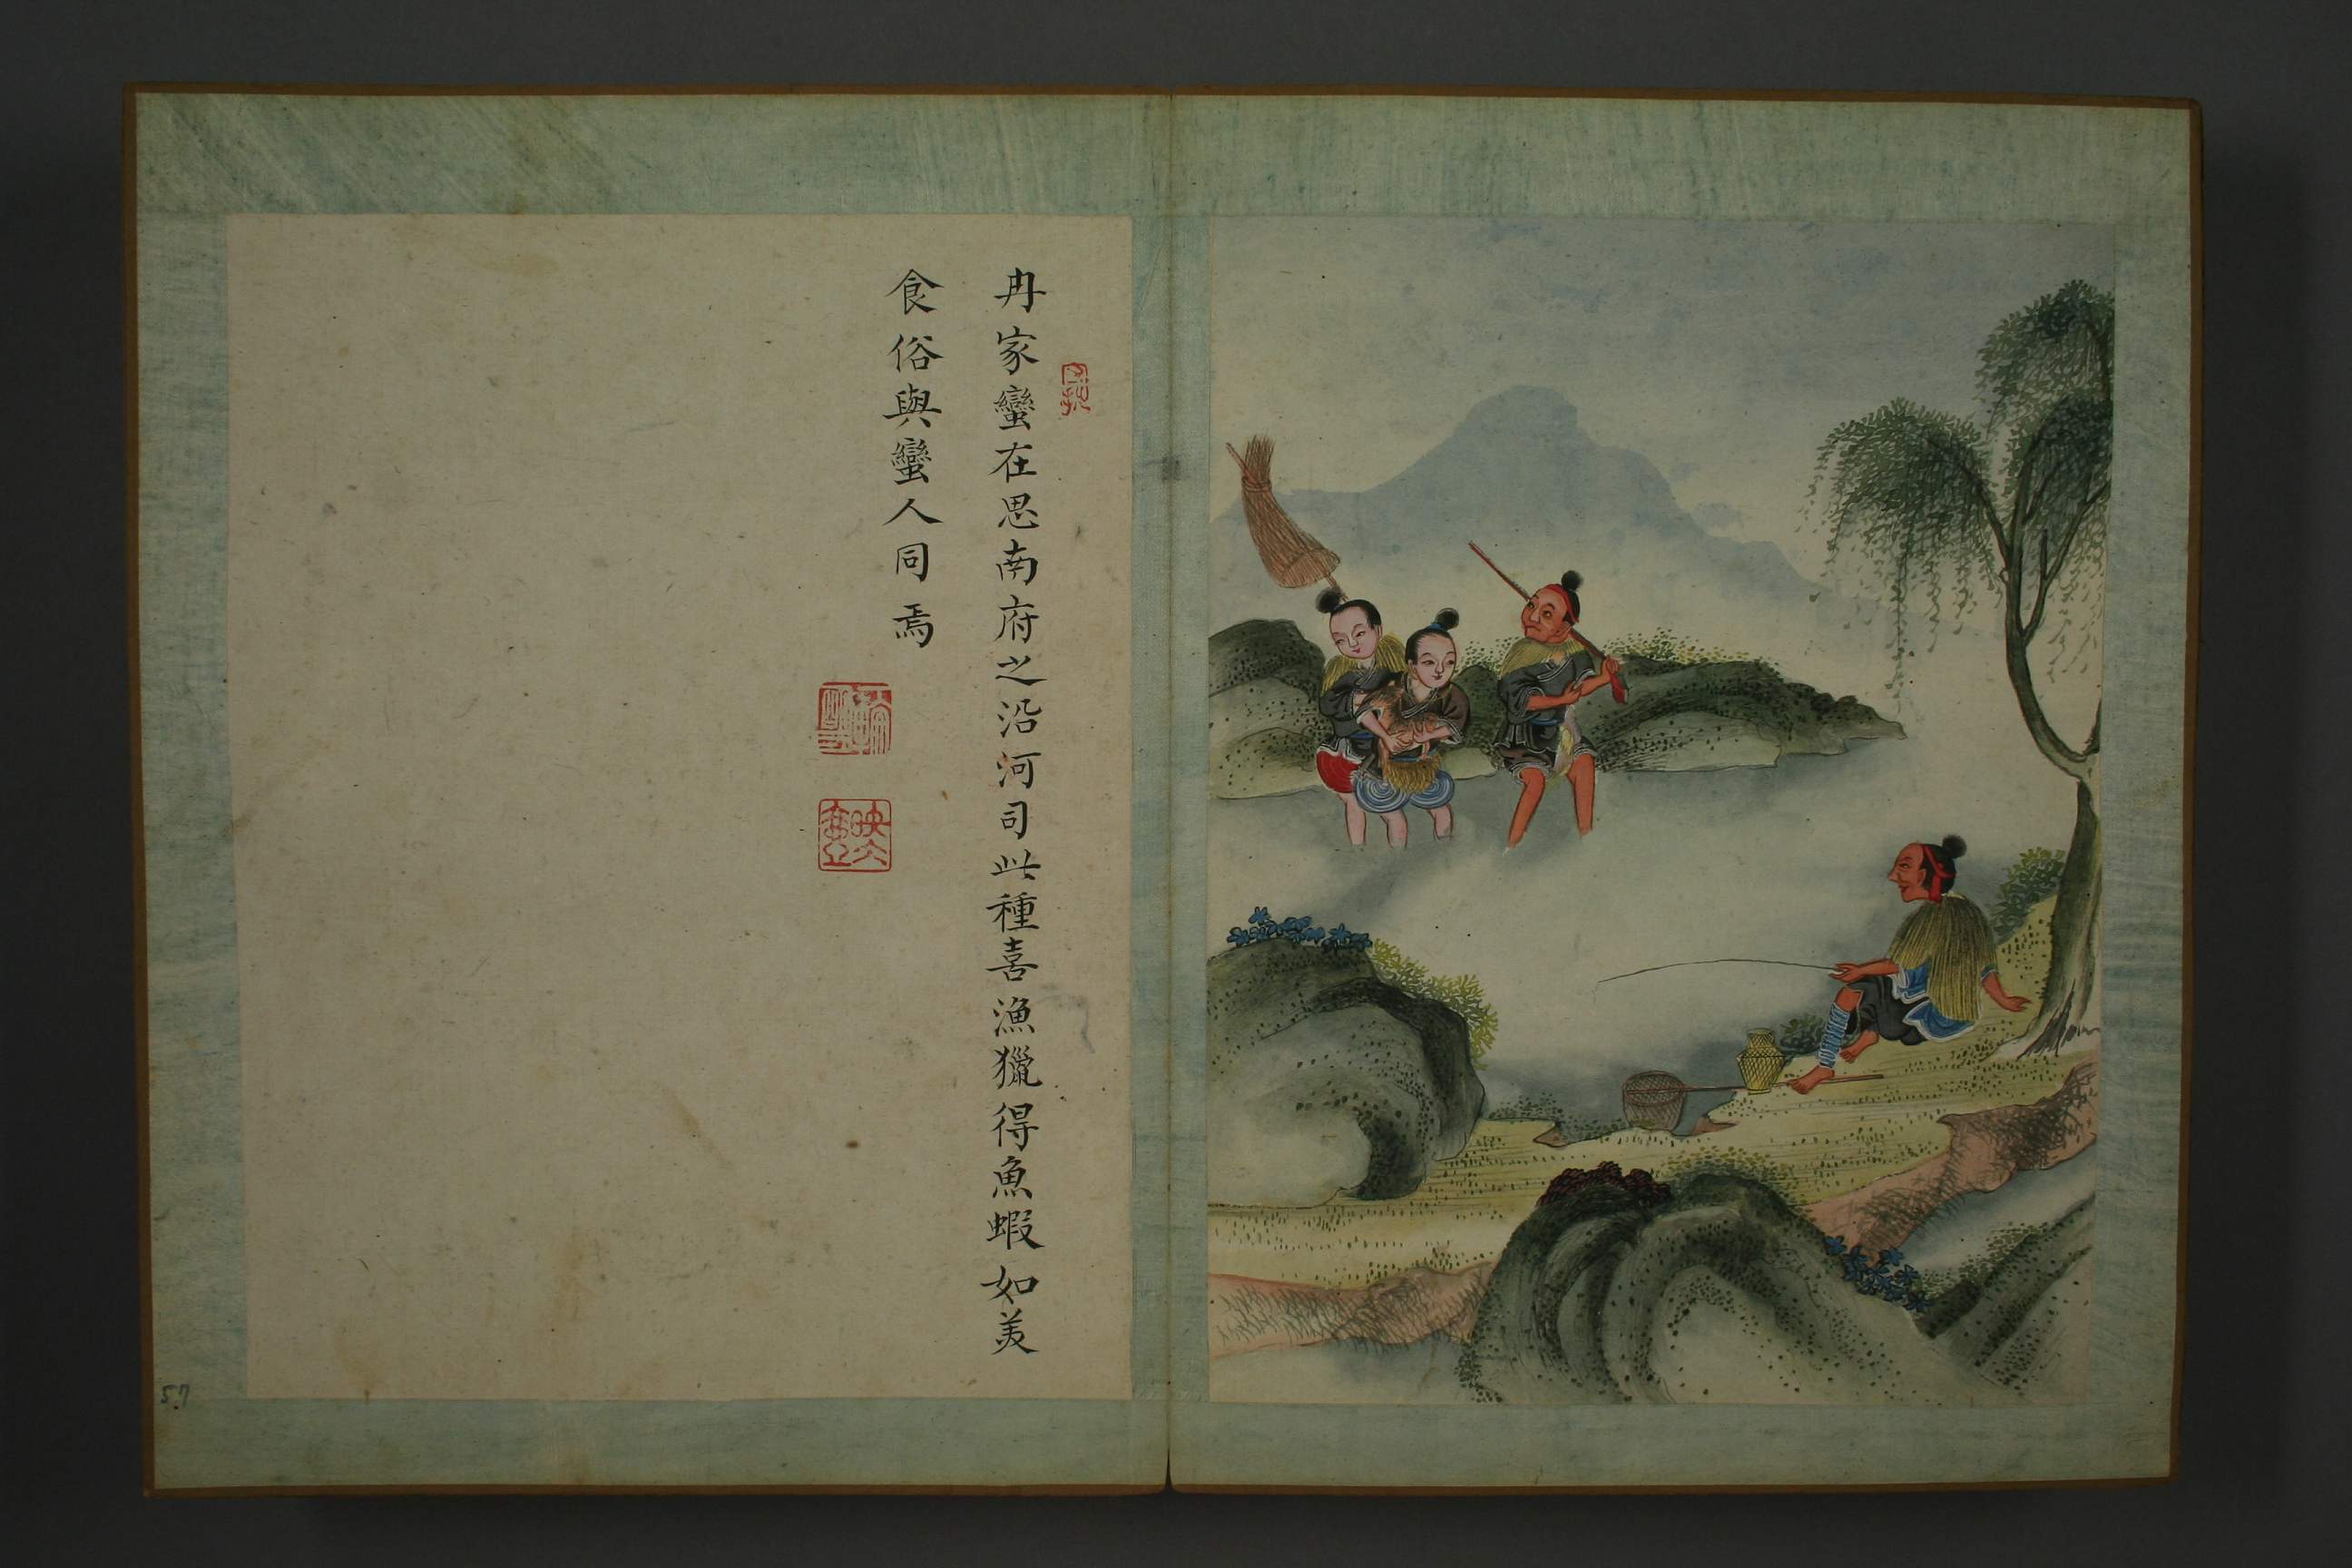 冉家蠻在思南府之沿河司此種喜漁獵得魚蝦如美
食俗與蠻人同焉
57